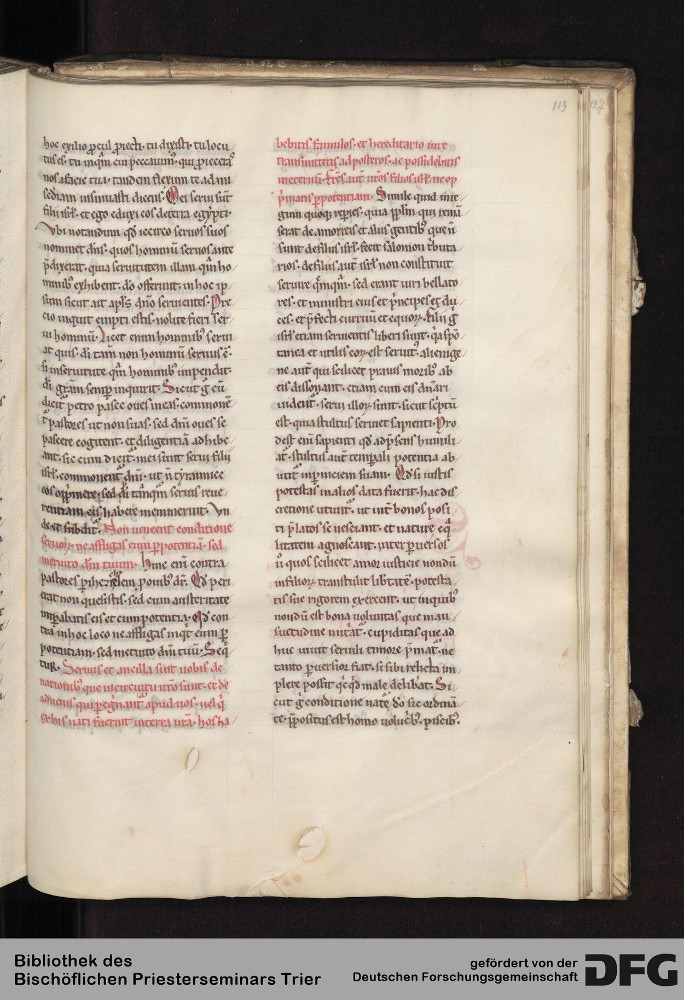 113
hoc exilio ꝓcul ꝓiecti. tu dixisti. tu locu
tus es. tu inqͣm cui peccauimꝰ. qui ꝓieceras
nos a facie tua. tandem flexum te ad mi
sediam insinuasti dicens. Mei serui sunt
filii isrl. et ego eduxi eos de terra egypti.
Vbi notandum qd iccirco seruos suos
nominet dns. quos hominū seruos ante
p̄dixerat. quia seruitutem illam qͣm ho
minibꝰ exhibent. do offerunt. in hoc ip
sum sicut ait apls dno seruientes. Pre
cio inquit empti estis. nolite fieri ser
ui hominū. Licet enim hominibꝰ serui
at quis. di tam̄ non hominū seruus ē.
si in seruitute qͣm hominibꝰ impendit.
di grām semp inquirit. Sicut g̊ cū
dicit petro pasce oues meas. commone
t pastores ut non suas. sed dni oues se
pascere cogitent. et diligentiā adhibe
ant. sic cum dicit. mei sunt serui filii
isrl. commonent dni. ut n̄ tyrannice
eos opp̄mere. sed di tanqͣm seruis reue
rentiam eis habere meminerint. Vn
de et subdit. Non uenient conditione
seruoꝝ. ne affligas eum ꝑ potentiā. sed
metuito dm tuum. Hinc eni contra
pastores ꝑ hiezechielem ꝓnibꝰ dr. Qd peri
erat non quesistis. sed cum austeritate
imperabatis eis et cum potentia. Qd con
tra in hoc loco ne affligas inqt eum ꝑ
potentiam. sed metuito dm tuū. Seqͥ
tur. Seruus et ancilla sint uobis de
nationibꝰ que in circuitu uro sunt. et de
aduenis qui peregnant apud uos. uel qͥ ex
his nati fuerint in terra ura. hos ha
bebitis famulos. et hereditario iure
transmittetis ad posteros. ac possidebitis
in eternū. Fres aut uros filios isrl. ne opp
p̄matis ꝑ potentiam. Simile quid in re
gum quoqꝫ reperies. quia pplm qui remā
serat de amorreis et aliis gentibꝰ que n̄
sunt de filiis isrl. fecit salomon tͥbuta
rios. de filiis aut isrl non constituit
seruire qͥmqͣm. sed erant uiri bellato
res. et ministri eius et p̄ncipes et du
ces. et p̄fecti curruū et equoꝝ. Filii g̊
isrl. etiam seruientes liberi sunt. qͥa spō
tanea et utilis eoꝝ est seruitꝰ. alienige
ne aut qui scilicet prauis moribꝰ ab
eis dissonant. etiam cum eis dn̄ari
uident. serui illoꝝ sunt. sicut sc̄ptū
est. quia stultus seruiet sapienti. Pro
dest eni sapienti qd ad p̄sens humili
at. stultus aut temporali potentia ab
utit in perniciem suam. Qd si iustis
potestas in alios data fuerit. hac dis
cretione utunt. ut int bonos posi
ti p̄latos se nesciant. et nature eqͣ
litatem agnoscant. inter peruersos
u̇ quos scilicet amor iusticie nondū
in filioꝝ transtulit libtate. potesta
tis sue rigorem exercent. ut in quibꝰ
nondū est bona uoluntas que man
suetudine nutͥat. cupiditas que ad
huc uiuit seruili timore p̄mat. ne
tanto ꝑuersior fiat. si sibi relicta im
plere possit qͥcqͥd male delibat. Si
cut g̊ conditione nate. do sic ordinā
te. p̄positus est homo uolucͥbꝰ. piscibꝰ.
Bibliothek des
Bischöflichen Priesterseminars Trier
gefördert von der
Deutschen Forschungsgemeinschaft
DFG